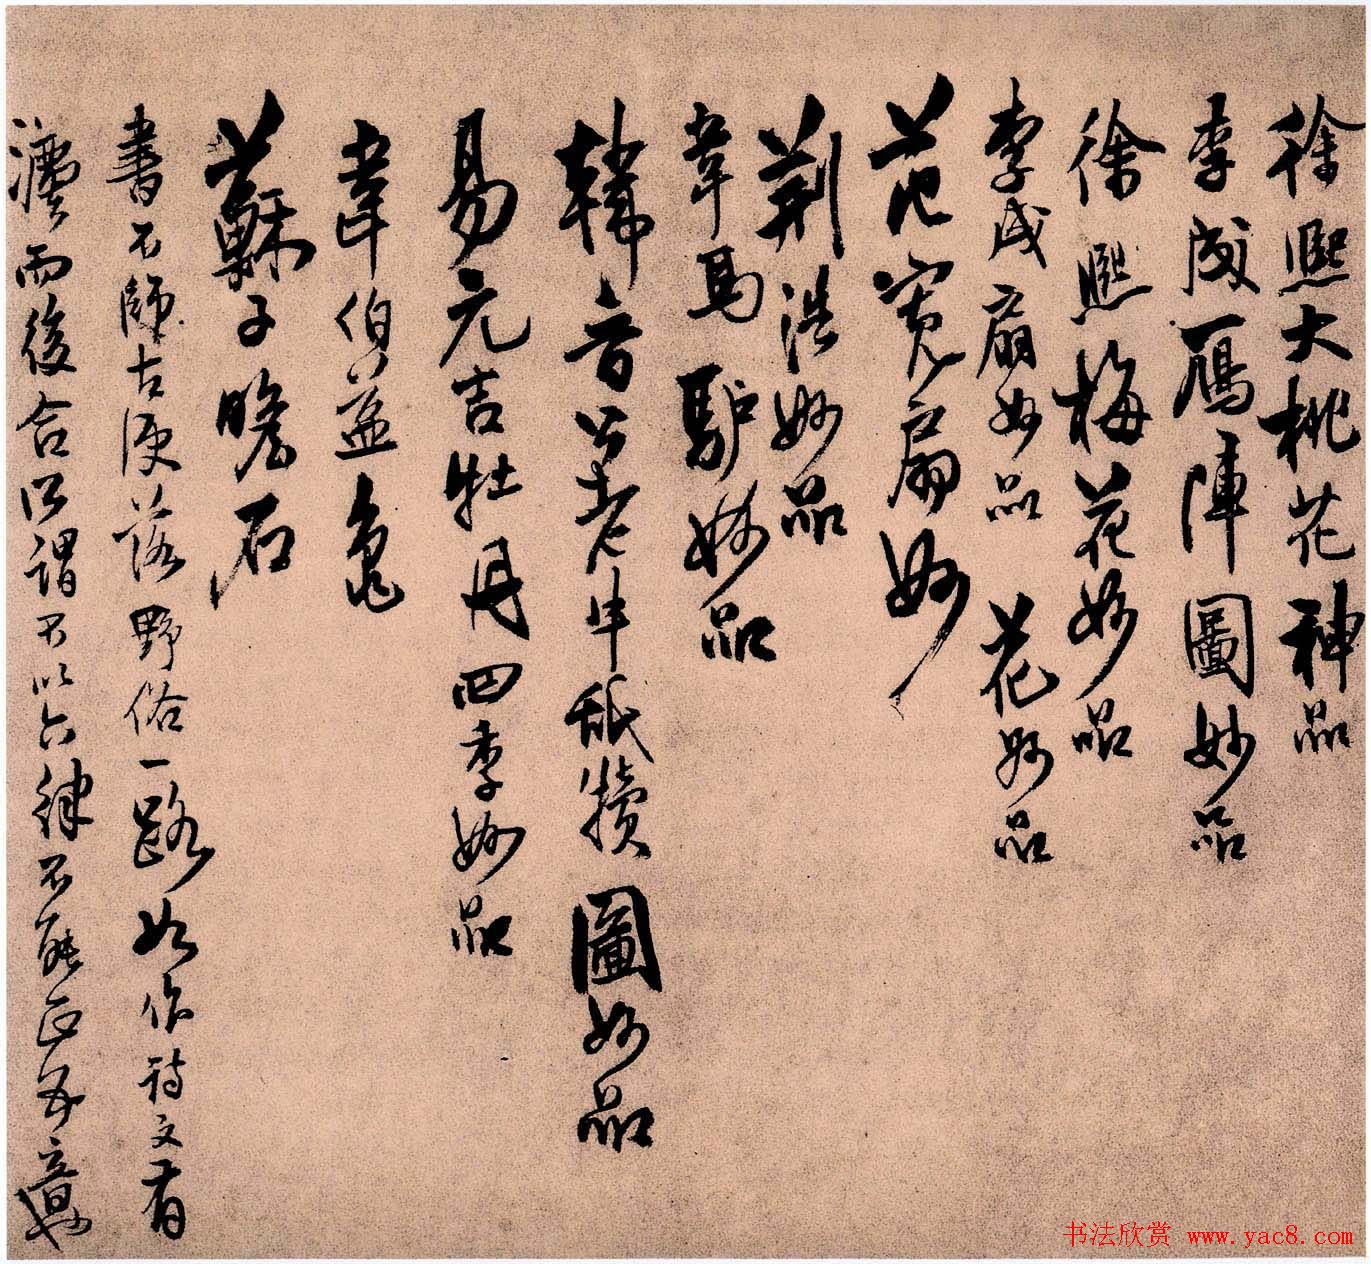 徐熙大桃花神品
李成鴈陣圖妙品
徐熙梅花妙品
李成扇妙品 花妙品
范寬扇妙
荊浩妙品
韋馬驢妙品
韓晉公老牛舐犢圖妙品
易元吉牡丹四季妙品
韋伯益龜
蘇子瞻石
書不師古便落野俗一路如作詩文有
灋而後合所謂不以六律不能正五音也
书法欣赏 www.yac8.com